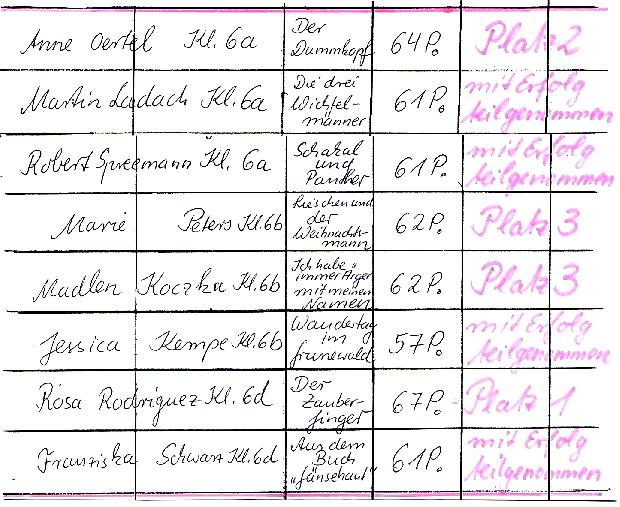 Anne Oertel Kl. 6a Der Dummkopf 64 P. Platz 2
Martin Ladach Kl. 6a Die drei Wichtel-männer 61 P. mit Erfolg teilgenommen
Robert Spreemann Kl. 6a Schakal und Panther 61 P. mit Erfolg teilgenommen
Marie Peters Kl. 6b Lieschen und der Weihnachts-mann 62 P. Platz 3
Madlen Koczka Kl. 6b Ich habe immer Ärger mit meinem Namen 62 P. Platz 3
Jessica Kempe Kl. 6b Wandertag im Grunewald 57 P. mit Erfolg teilgenommen
Rosa Rodriguez Kl. 6d Der Zauber-finger 67 P. Platz 1
Franziska Schwarz Kl. 6d Aus dem Buch „Gänsehaut" 61 P. mit Erfolg teilgenommen